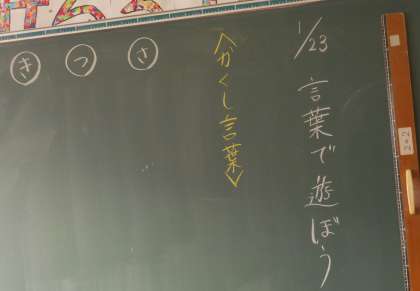 1/23
言葉で遊ぼう
〈かくし言葉〉
さ
つ
き